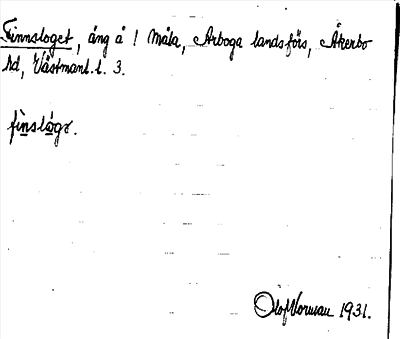 Finnsloget, äng å 1 Måla, Arboga landsförs, Åkerbo
hd, Västmanl. l. 3.
fìnslógɘ.
Olof Norman 1931.